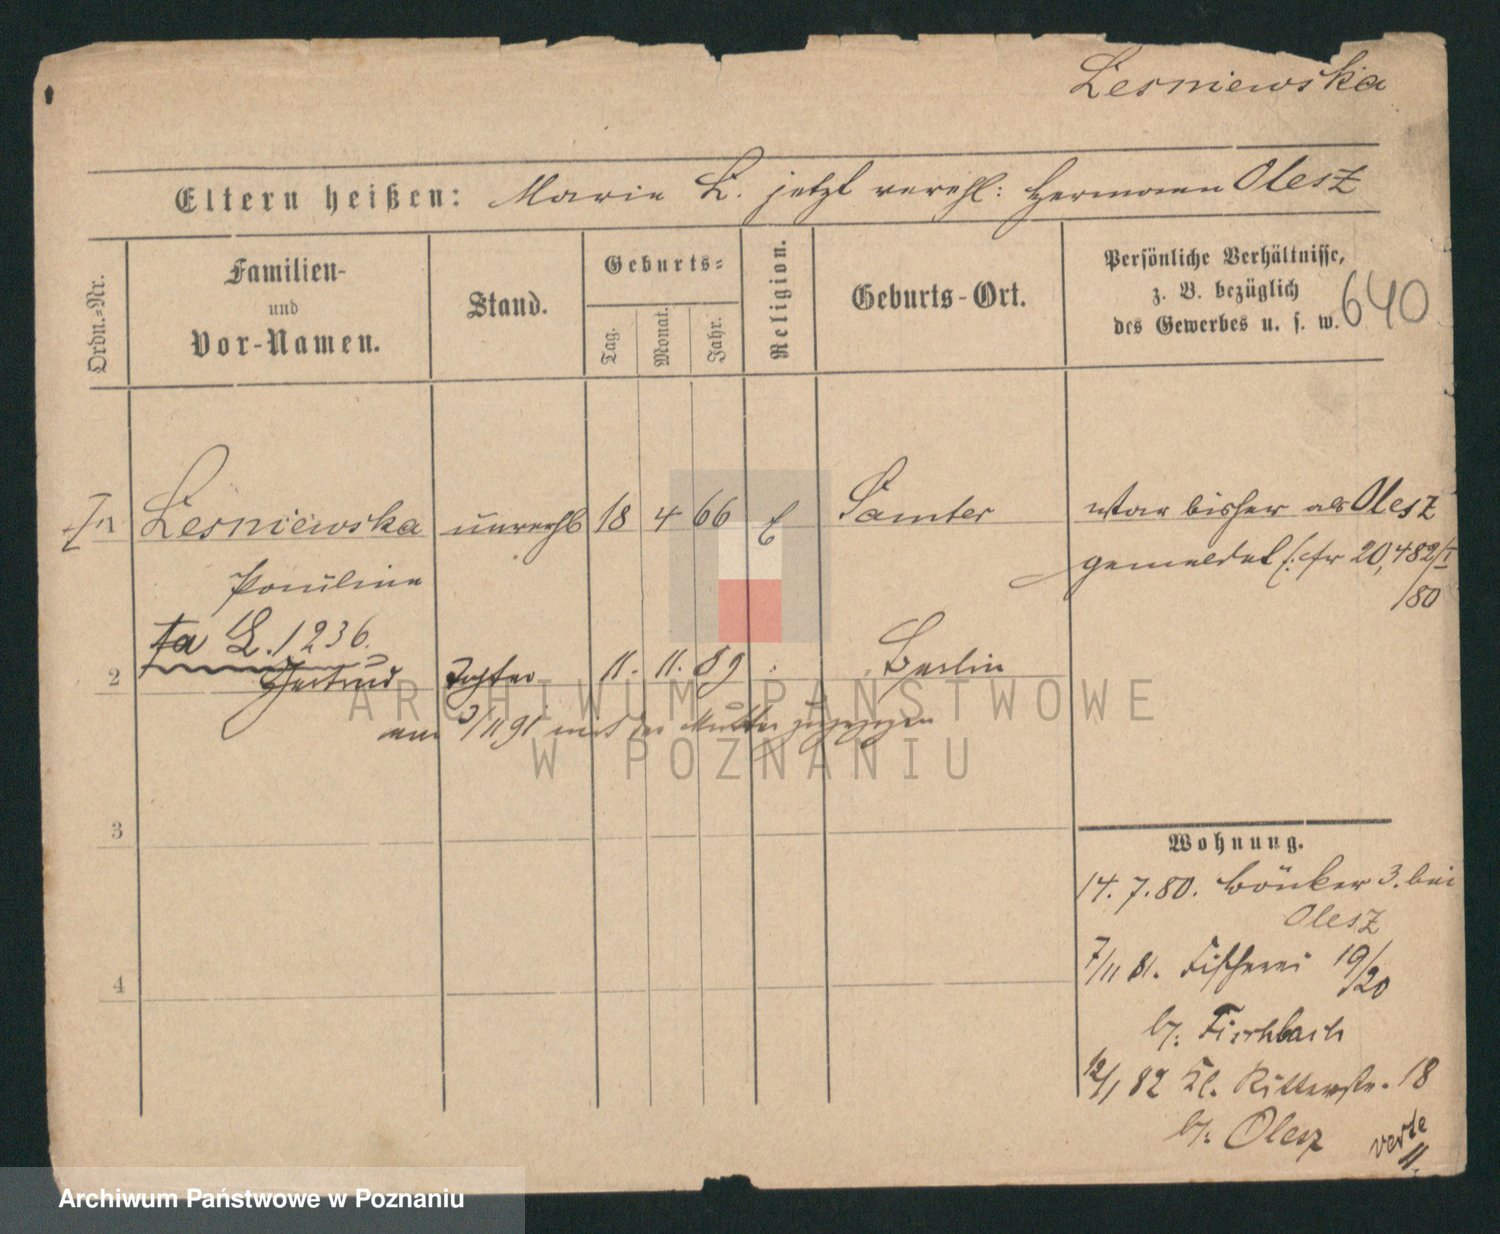 Lesniewska
Eltern heißen: Marie L. jetzt verehl: Hermann Olesz
Ordn.-Nr.
Familien-
und
Vor-Namen.
Stand.
Geburts-
Tag.
Monat.
Jahr.
Religion.
Geburts-Ort.
Persönliche Verhältnisse,
z. B. bezüglich
des Gewerbes u. s. w.
640
1 Lesniewska unverehl 18 4 66 Samter war bisher als Olesz
Pauline gemeldet /: cfr 20,482/I
/80
fa L. 1236.
2 Gertrud Tochter 11. 11. 89 Berlin
am 3/11 91 mit der Mutter zugezogen
3
4
Wohnung.
14. 7. 80. Bäcker 3. bei
Olesz
7/11 81. Fischerei 19/20
b/: Fischbach
12/1 82 Kl. Ritterstr. 18
b/: Olesz
verte
ARCHIWUM PAŃSTWOWE
W POZNANIU
Archiwum Państwowe w Poznaniu